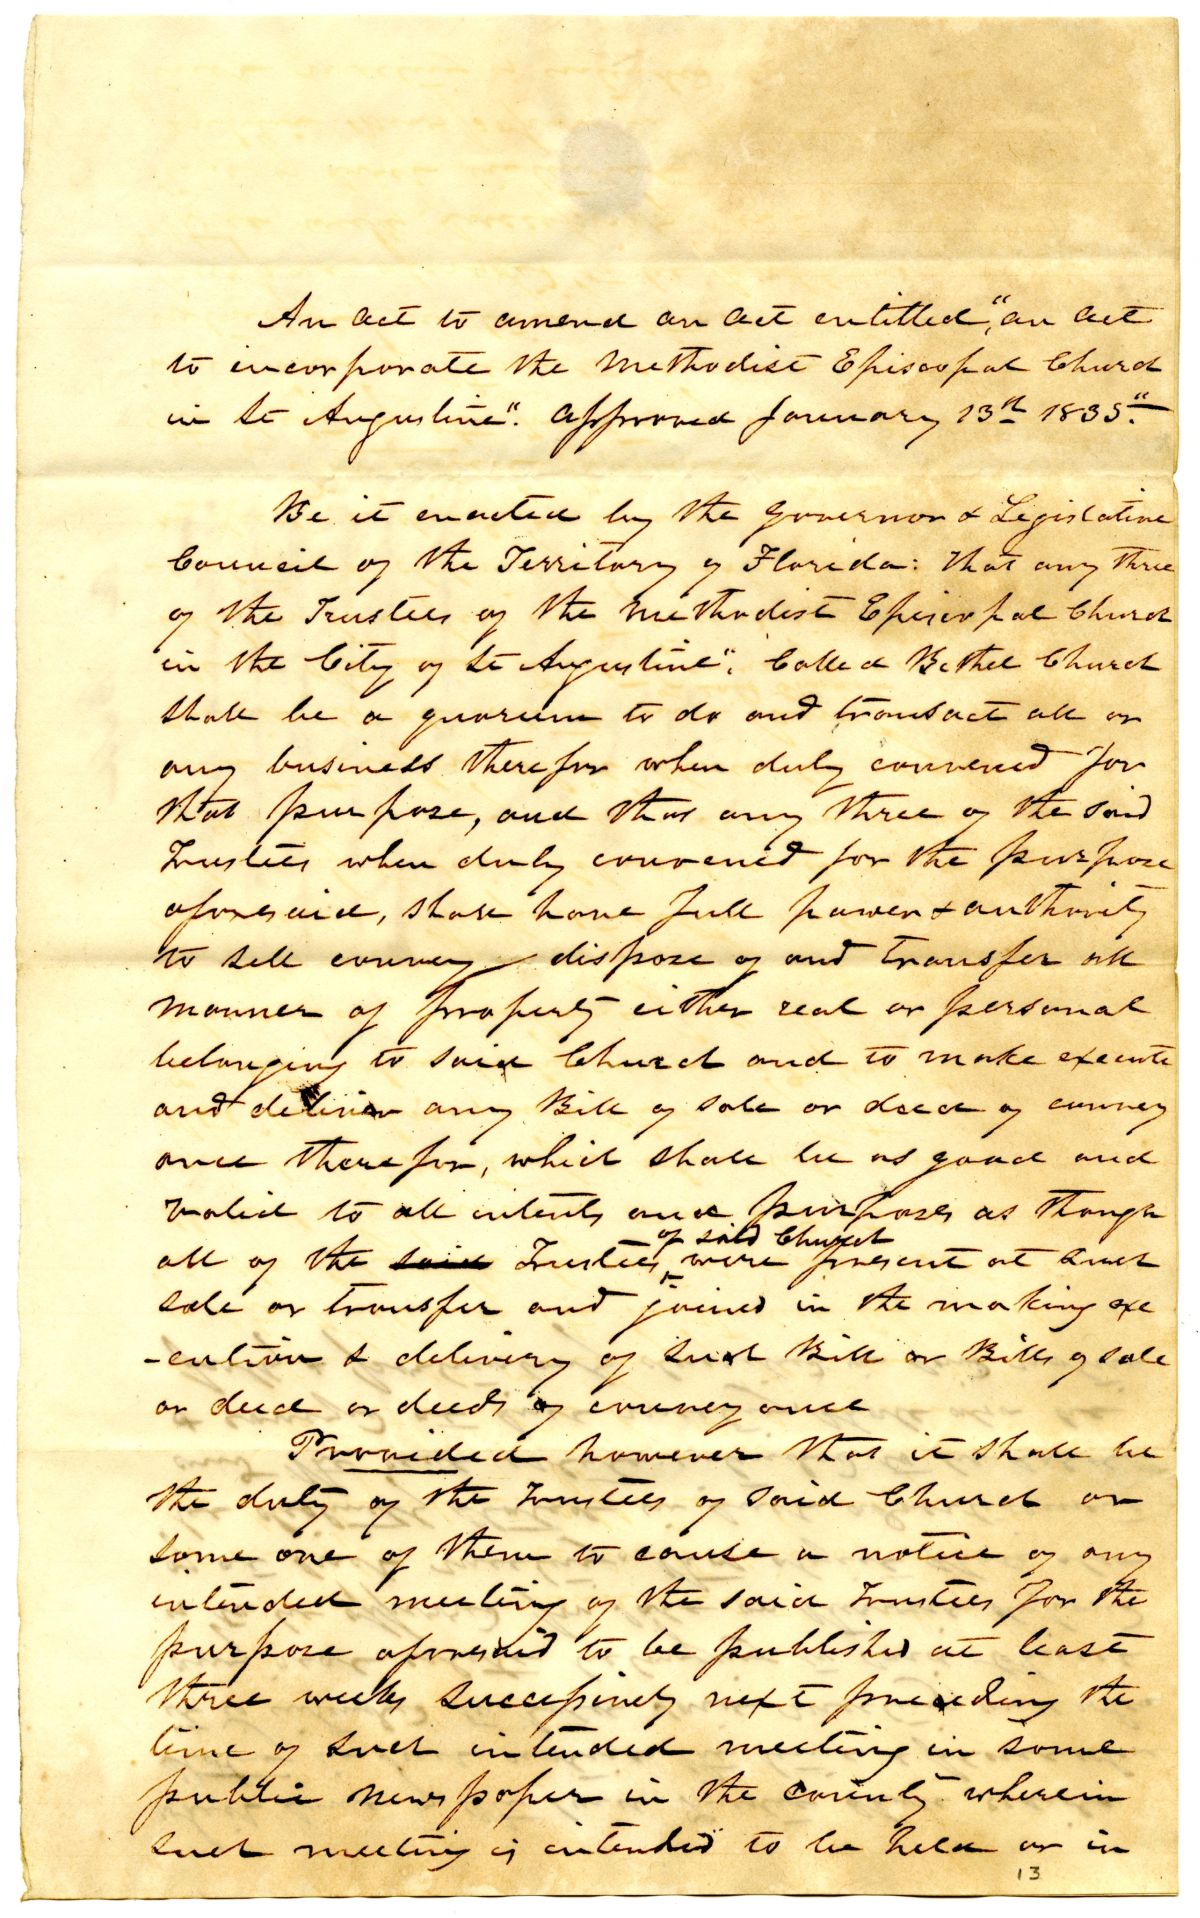 An act to amend an act entitled, "an act
to incorporate the Methodist Episcopal Church
in St Augustine". approved January 13th 1835."
Be it enacted by the Governor & Legislative
Council of the Territory of Florida: that any three
of the Trustees of the Methodist Episcopal Church
in the City of St Augustine", Called Bethel Church
shall be a quorum to do and transact all or
any business therefor when duly convened for
that purpose, and that any three of the said
Trustees when duly convened for the purpose
aforesaid, shall have full power & authority
to sell convey dispose of and transfer all
manner of property either real or personal
belonging to said Church and to make execute
and deliver any Bill of sale or deed of convey
ance therefor, which shall be as good and
valid to all intents and purposes as though
all of the said Trustees of said Church were present at such
sale or transfer and joined in the making exe
-cution & delivery of such Bill or Bills of sale
or deed or deeds of conveyance
Provided however that it shall be
the duty of the Trustees of said Church or
some one of them to cause a notice of any
intended meeting of the said Trustees for the
purpose aforesaid to be published at least
three weeks successively next preceding the
time of such intended meeting in some
public newspaper in the county wherein
such meeting is intended to be held or in
13